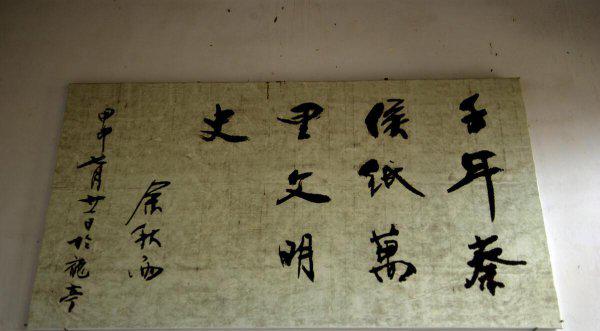 千年蔡
侯纸萬
里文明
史
余秋雨
甲申七月廿日於龍亭